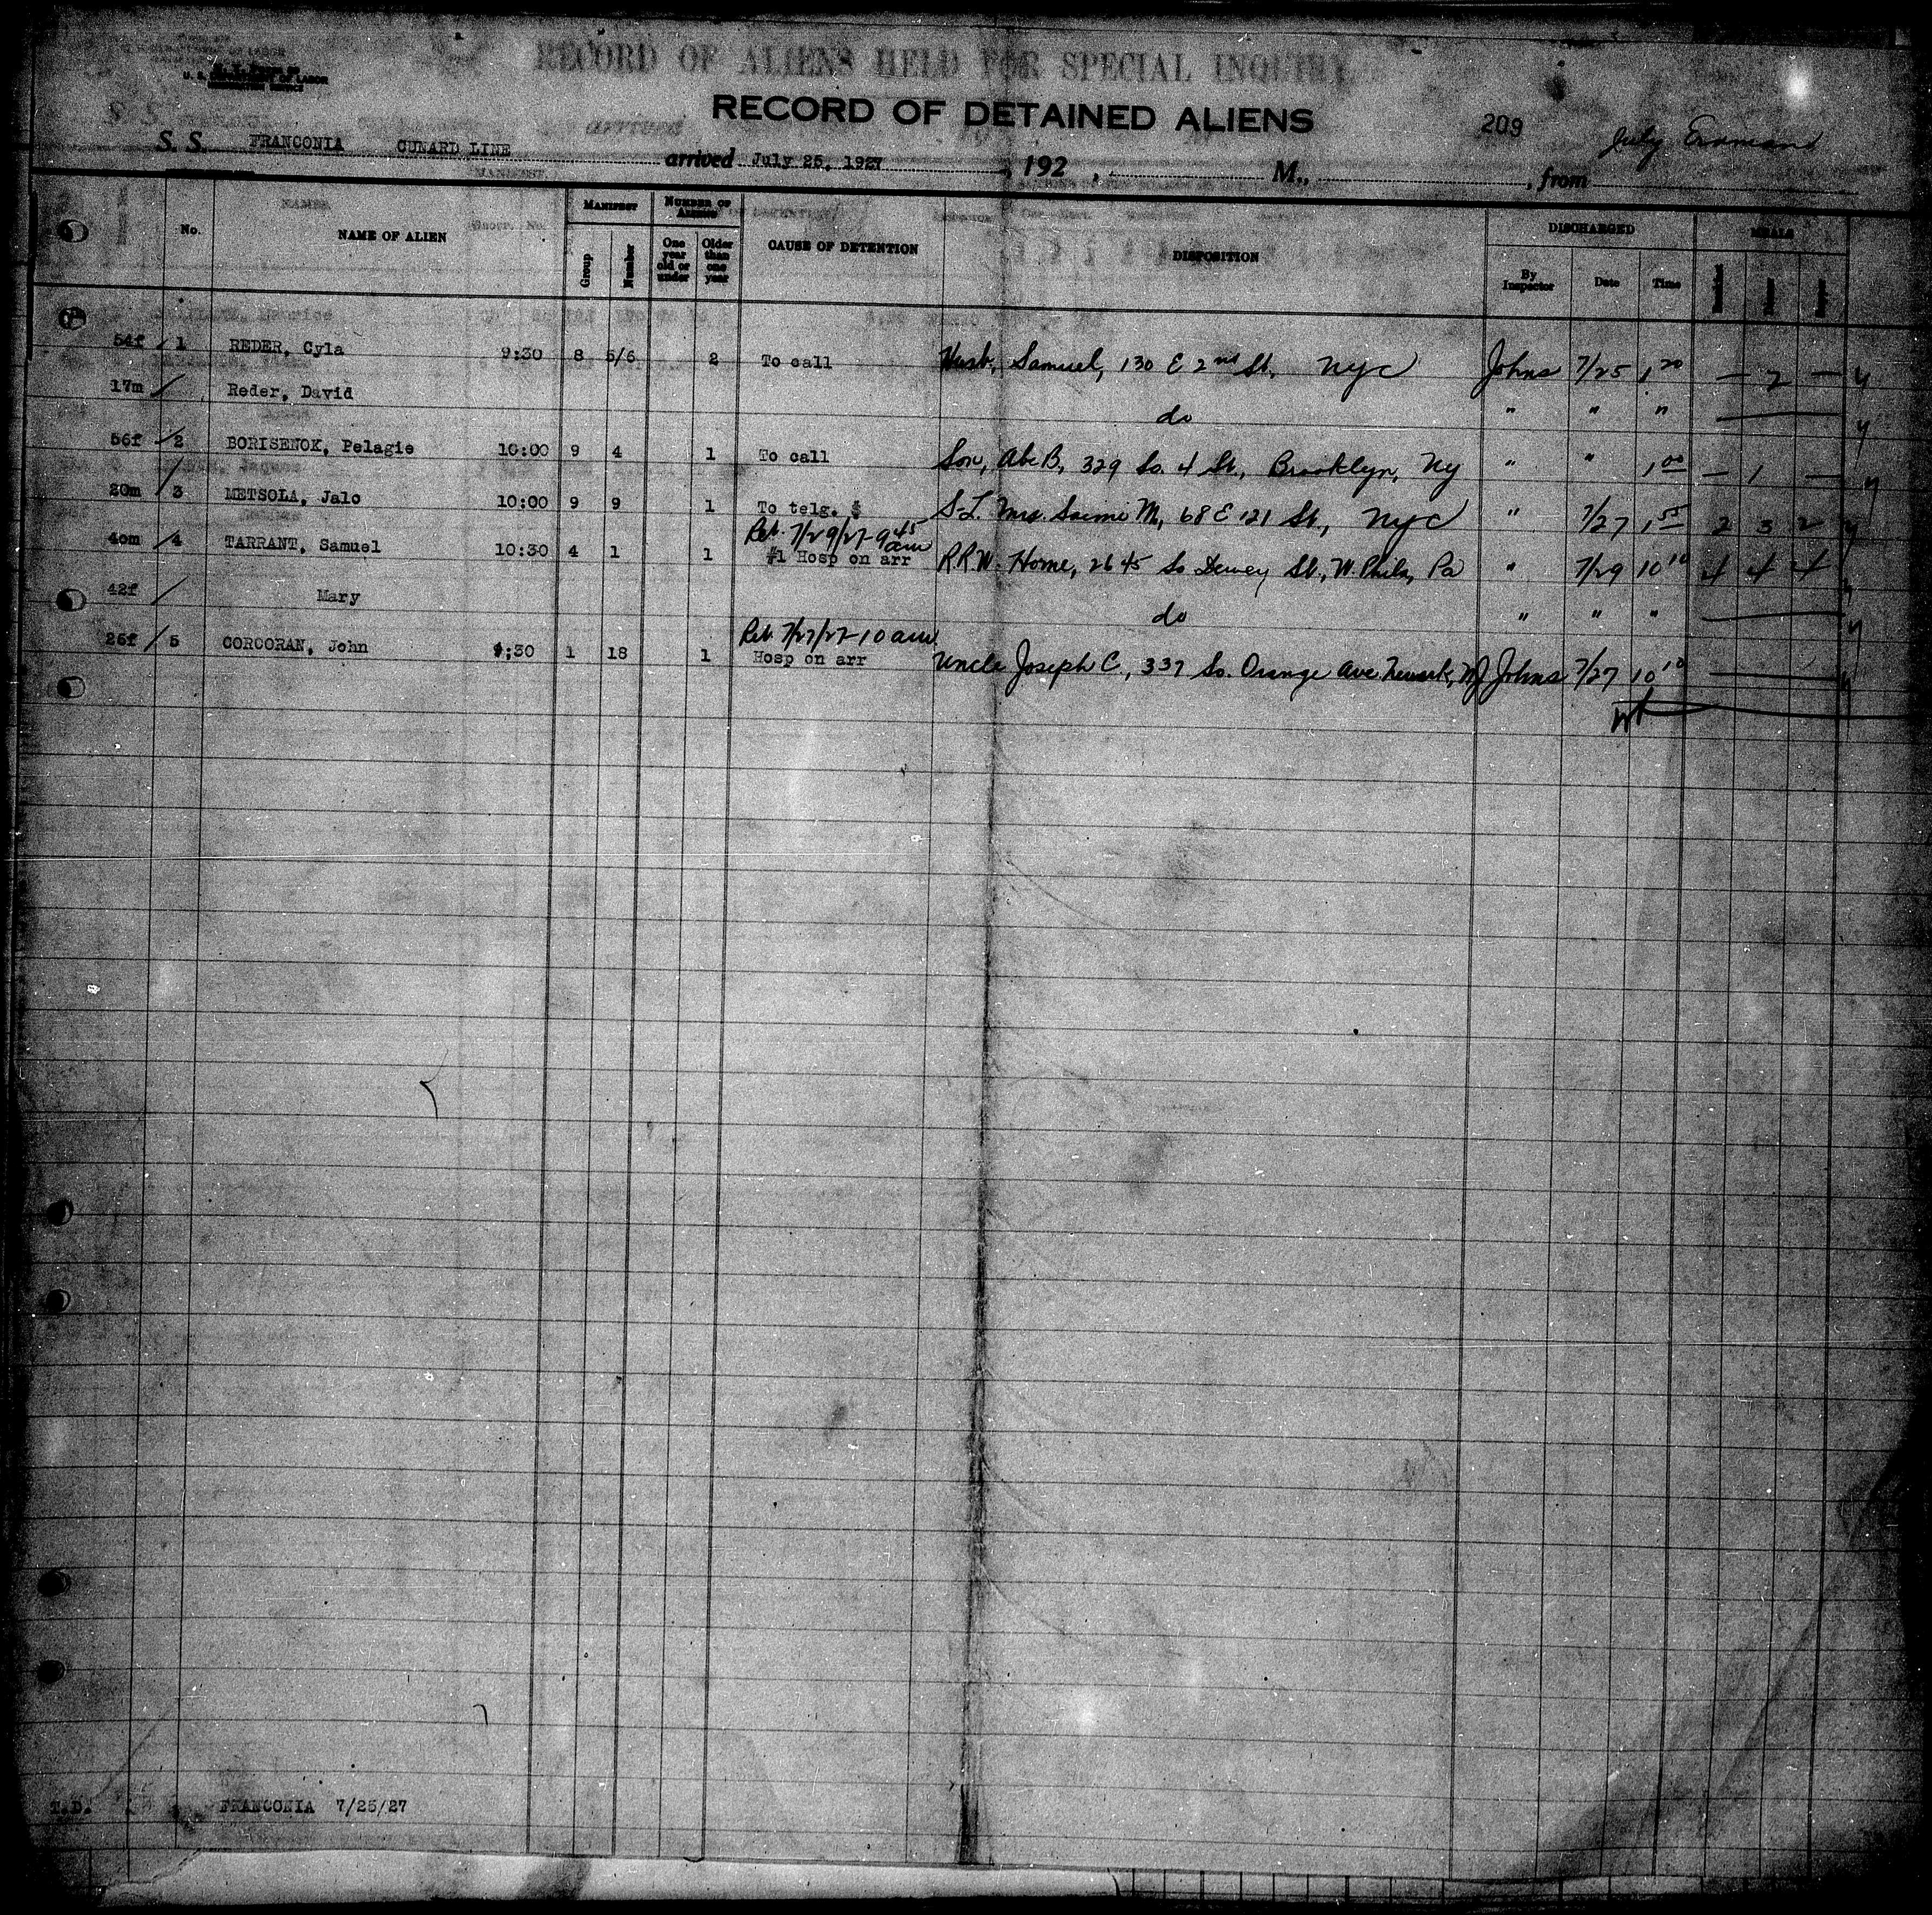 RECORD OF ALIENS HELD FOR SPECIAL INQUIRY
U. S. DEPARTMENT OF LABOR
IMMIGRATION SERVICE
RECORD OF DETAINED ALIENS
209
S. S. FRANCONIA CUNARD LINE arrived July 25, 1927, 192 , M., , from
No. NAME OF ALIEN MANIFEST Group Number NUMBER OF ALIENS One year old or under Older than one year CAUSE OF DETENTION DISPOSITION DISCHARGED By Inspector Date Time MEALS Breakfast Dinner Supper
54f / 1 REDER, Cyla 9:30 8 5/6 2 To call Husb, Samuel, 130 E 2nd St, NYC Johns 7/25 1 20 — 2 —
17m / Reder, David do " " "
56f / 2 BORISENOK, Pelagie 10:00 9 4 1 To call Son, Abe B, 329 So. 4 St., Brooklyn, NY " " 1 00 — 1 —
20m / 3 METSOLA, Jalo 10:00 9 9 1 To telg. $ S-L Mrs. Saimi M, 68 E 121 St., NYC " 7/27 1 55 2 3 2
Ret. 7/29/27-9 45 am
40m / 4 TARRANT, Samuel 10:30 4 1 1 #1 Hosp on arr R R W. Home, 2645 So Dewey St., W. Phila, Pa " 7/29 10 10 4 4 4
42f / Mary do " " "
Ret. 7/27/27-10 am
26f / 5 CORCORAN, John 9:30 1 18 1 Hosp on arr Uncle Joseph C., 337 So. Orange Ave Newark, NJ Johns 7/27 10 10
T.D. FRANCONIA 7/25/27